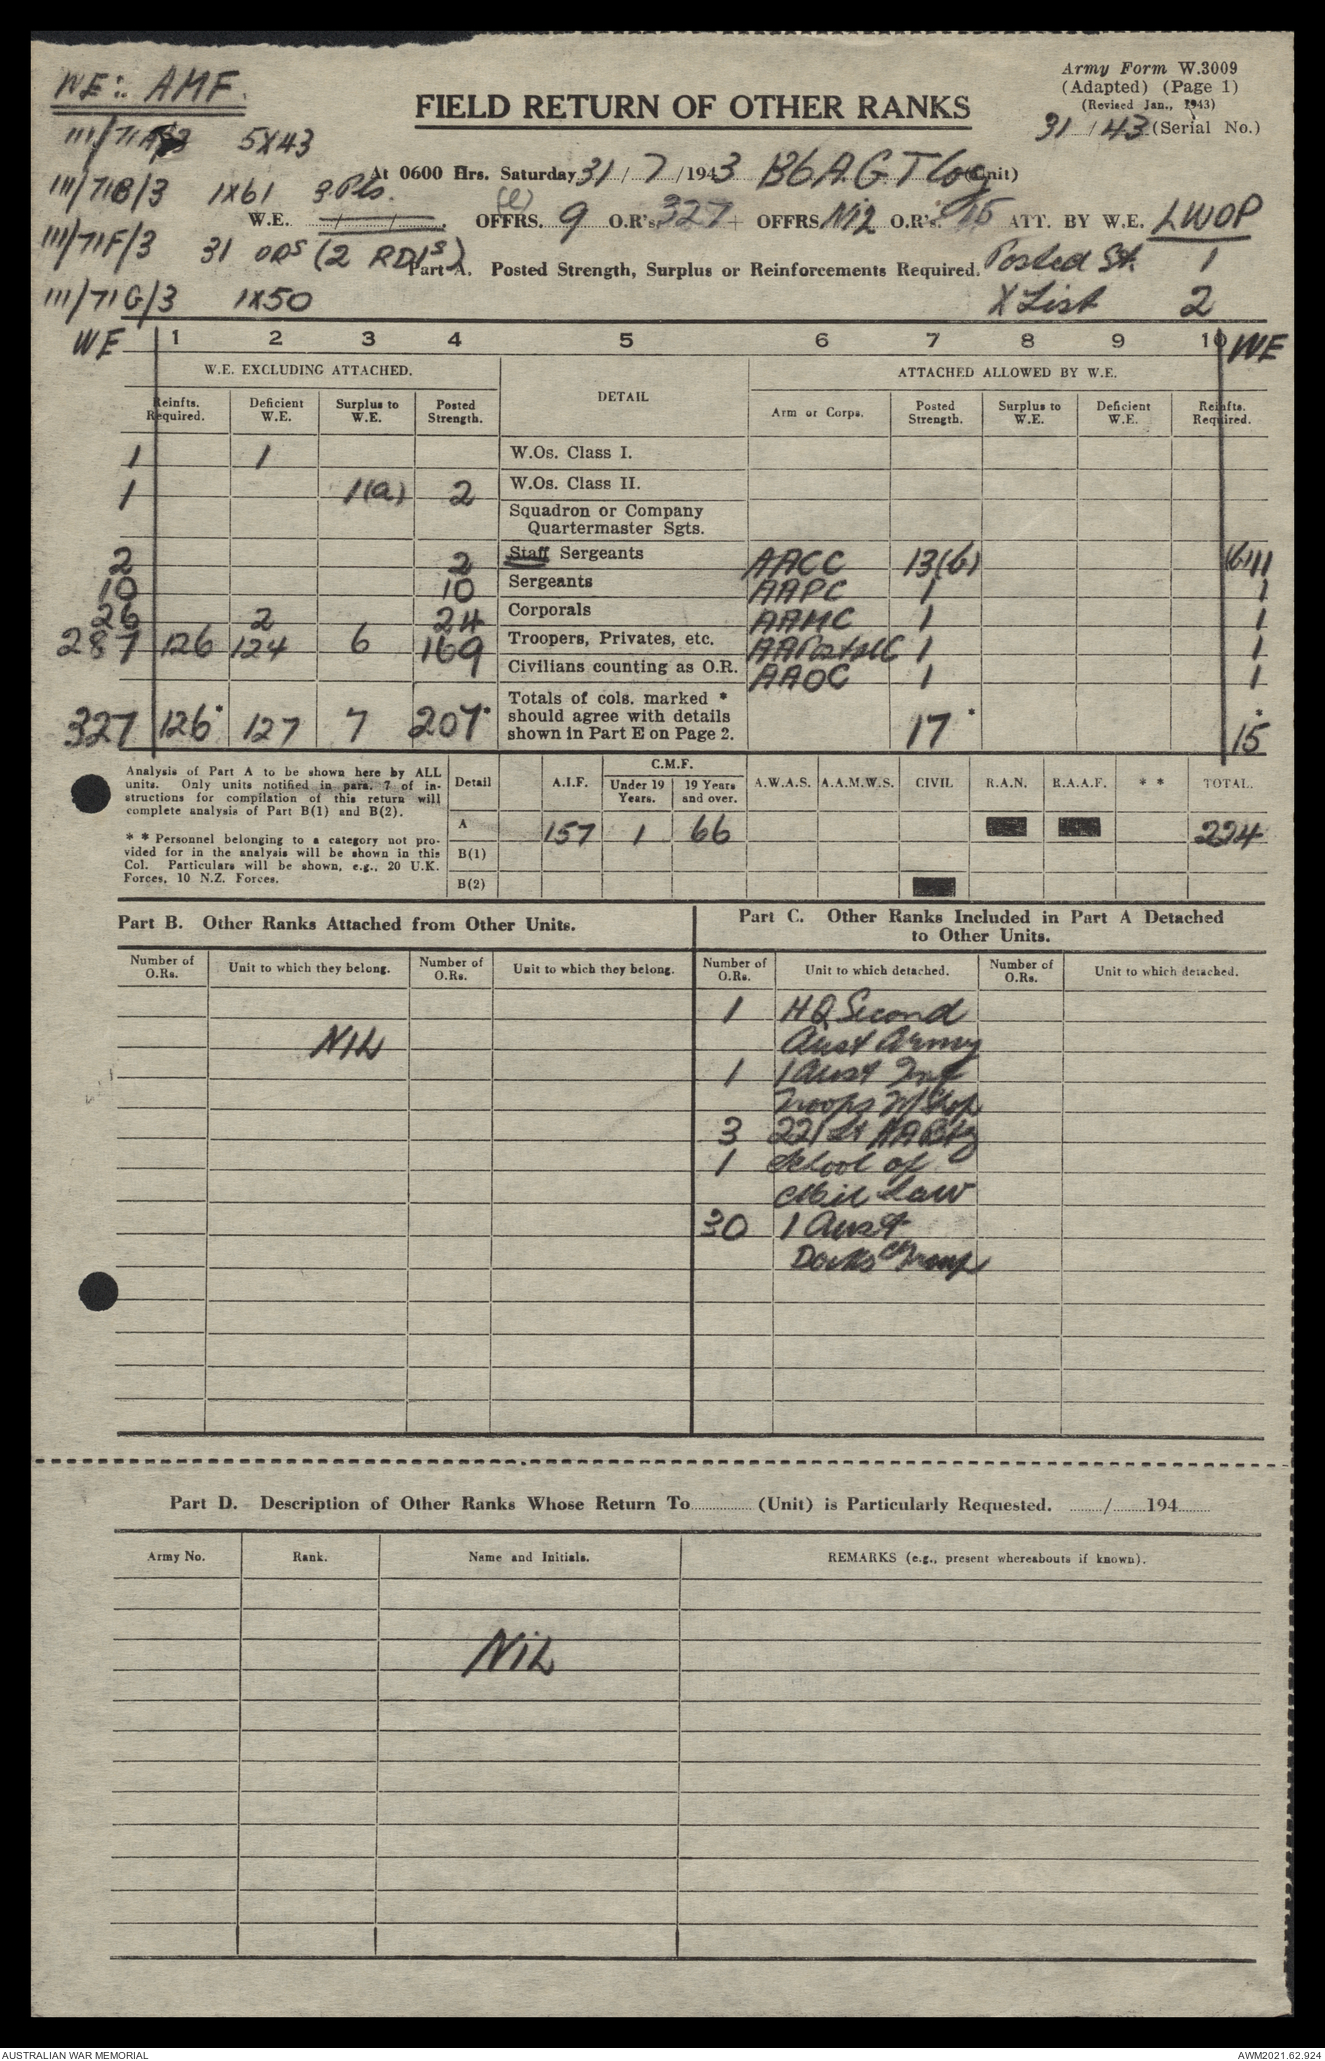 WE:. AMF.
Army Form W.3009
(Adapted) (Page 1)
(Revised Jan., 1943)
31 / 43 (Serial No.)
FIELD RETURN OF OTHER RANKS
111/71A/3 5X43
At 0600 Hrs. Saturday 31 / 7 / 1943 136 A.G.T Coy (Unit)
111/71B/3 1X61 3 Pls.
W.E. ....../....../...... OFFRS. (e) 9 O.R's. 327 + OFFRS NIL O.R's. 15 ATT. BY W.E. LWOP
111/71F/3 31 ORS (2 RDIs)
Part A. Posted Strength, Surplus or Reinforcements Required. Posted St. 1
111/71G/3 1X50 X List 2
WE 1 2 3 4 5 6 7 8 9 10 WE
W.E. EXCLUDING ATTACHED. DETAIL ATTACHED ALLOWED BY W.E.
Reinfts. Required. Deficient W.E. Surplus to W.E. Posted Strength. Arm or Corps. Posted Strength. Surplus to W.E. Deficient W.E. Reinfts. Required.
1 1 W.Os. Class I.
1 1(a) 2 W.Os. Class II.
Squadron or Company
Quartermaster Sgts.
2 2 Staff Sergeants AACC 13(b) (b)11
10 10 Sergeants AAPC 1 1
26 2 24 Corporals AAMC 1 1
287 126 124 6 169 Troopers, Privates, etc. AAPostalC 1 1
Civilians counting as O.R. AAOC 1 1
327 126* 127 7 207* Totals of cols. marked * should agree with details shown in Part E on Page 2. 17* *15
Analysis of Part A to be shown here by ALL
units. Only units notified in para. 7 of in-
structions for compilation of this return will
complete analysis of Part B(1) and B(2).
* * Personnel belonging to a category not pro-
vided for in the analysis will be shown in this
Col. Particulars will be shown, e.g., 20 U.K.
Forces, 10 N.Z. Forces.
Detail A.I.F. C.M.F. Under 19 Years. 19 Years and over. A.W.A.S. A.A.M.W.S. CIVIL R.A.N. R.A.A.F. * * TOTAL.
A 157 1 66 224
B(1)
B(2)
Part B. Other Ranks Attached from Other Units.
Number of O.Rs. Unit to which they belong. Number of O.Rs. Unit to which they belong.
NIL
Part C. Other Ranks Included in Part A Detached
to Other Units.
Number of O.Rs. Unit to which detached. Number of O.Rs. Unit to which detached.
1 HQ Second
Aust Army
1 1 Aust Inf
Troops W/Shop
3 221 Lt AA Bty
1 School of
Mil Law
30 1 Aust
Docks Group
Part D. Description of Other Ranks Whose Return To............ (Unit) is Particularly Requested. ....../......194......
Army No. Rank. Name and Initials. REMARKS (e.g., present whereabouts if known).
NIL
AUSTRALIAN WAR MEMORIAL AWM2021.62.924